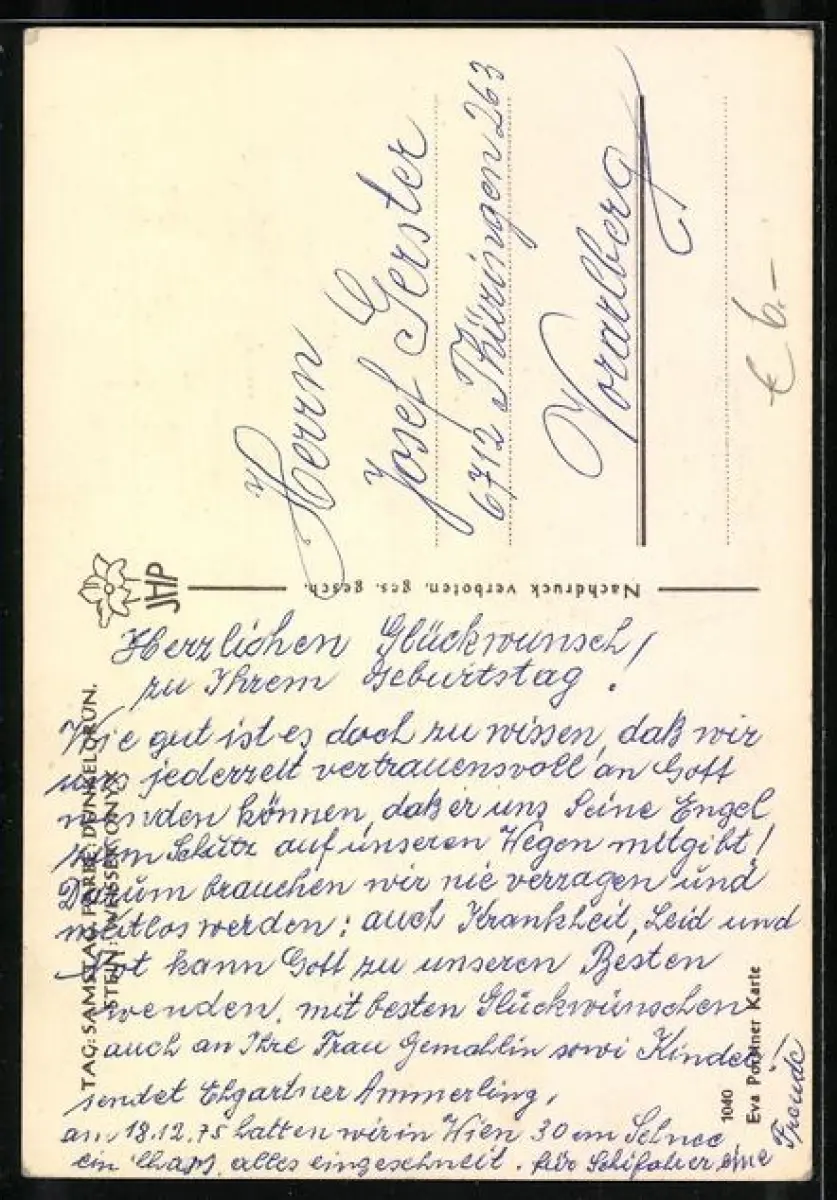 Herrn
Josef Gerster
6712 Thüringen 263
Vorarlberg
€ 6.-
JHP
Nachdruck verboten, ges. gesch.
Herzlichen Glückwunsch
zu Ihrem Geburtstag!
Wie gut ist es doch zu wissen, daß wir
uns jederzeit vertrauensvoll an Gott
wenden können, daß er uns Seine Engel
zum Schutz auf unseren Wegen mitgibt!
Darum brauchen wir nie verzagen und
mutlos werden; auch Krankheit, Leid und
Not kann Gott zu unseren Besten
wenden. mit besten Glückwünschen
auch an Ihre Frau Gemahlin sowi Kinder!
sendet Ehgartner Ammerling,
am 18.12.75 hatten wir in Wien 30 cm Schnee
ein Chaos, alles eingeschneit. für Schifahrer eine
Freude
TAG: SAMSTAG, FARBE: DUNKELGRÜN.
STEIN: WEISSER ONYX
1040
Eva Karte